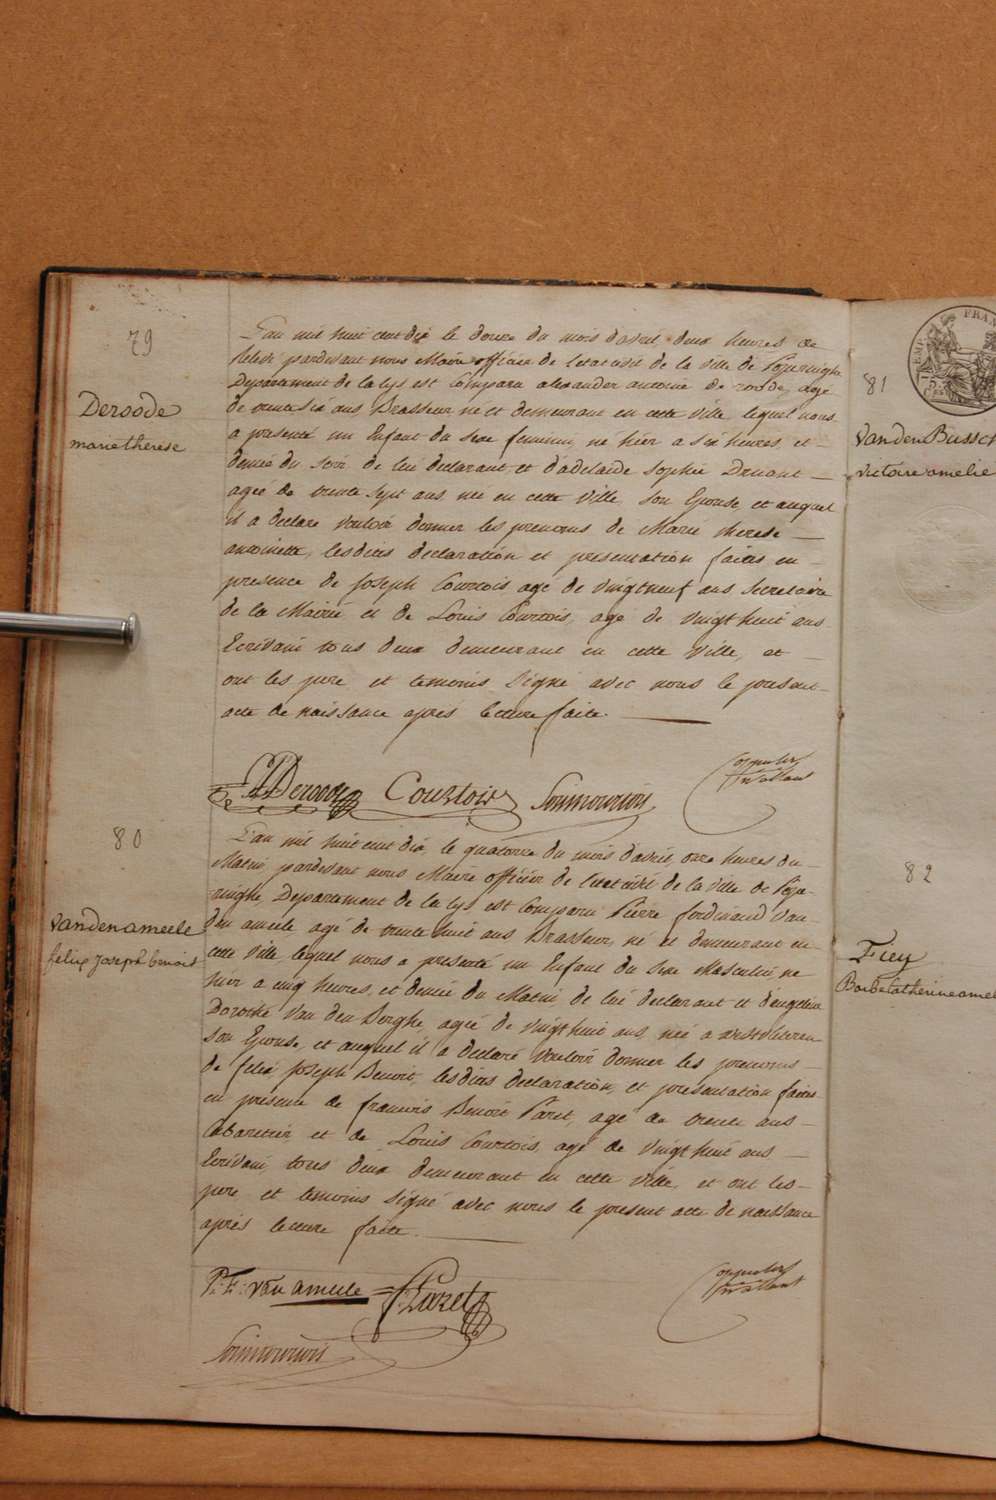 79
Deroode
marie therese
L'an mil huit cent dix le douze du mois d'avril, deux heures de
relevée pardevant nous Maire officier de l'etat civil de la ville de Poperinghe
Departement de la Lys est Comparu alexander antoine de roode, agé
de trente six ans Brasseur né et demeurant en cette Ville, lequel nous
a presenté un Enfant du sexe feminin, né hier a six heures et
demie du soir de lui declarant et d'adelaide sophie Druant
ageé de trente sept ans neé en cette Ville, son Epouse, et auquel
il a declaré vouloir donner les prenoms de Marie therese
antoinette, lesdites declaration et presentation faites en
presence de Joseph Courtois agé de vingt neuf ans Secretaire
de la Mairie et de Louis Courtois, agé de vingt huit ans
Ecrivain tous deux demeurant en cette Ville, et
ont les pere et temoins signé avec nous le present
acte de naissance aprés lecture faite.
Deroode Courtois
80
vandenameele
felix joseph benoit
L'an mil huit cent dix, le quatorze du mois d'avril, onze heures du
Matin, pardevant nous Maire officier de l'etat civil de la Ville de Pope-
ringhe, Departement de la Lys, est Comparu Pierre ferdinand Van-
den ameele agé de trente huit ans Brasseur, né et demeurant en
cette Ville, lequel nous a presenté un Enfant du sexe Masculin né
hier a cinq heures, et demie du Matin de lui declarant et d'angeline
Dorothé Van den Berghe, ageé de vingt huit ans, neé a
son Epouse, et auquel il a declaré vouloir donner les prenoms
de felix Joseph Benoit, lesdites declaration, et presentation faites
en presence de francois Benoit Paret, agé de trente ans
Cabaretier, et de Louis Courtois, agé de vingt huit ans
Ecrivain, tous deux demeurant en cette Ville, et ont les
pere et temoins signé avec nous le present acte de naissance
aprés lecture faite.
P: F: van ameele Paret
81
vanden Bussch
victoire amelie
82
Frey
Barbe Catherine amel